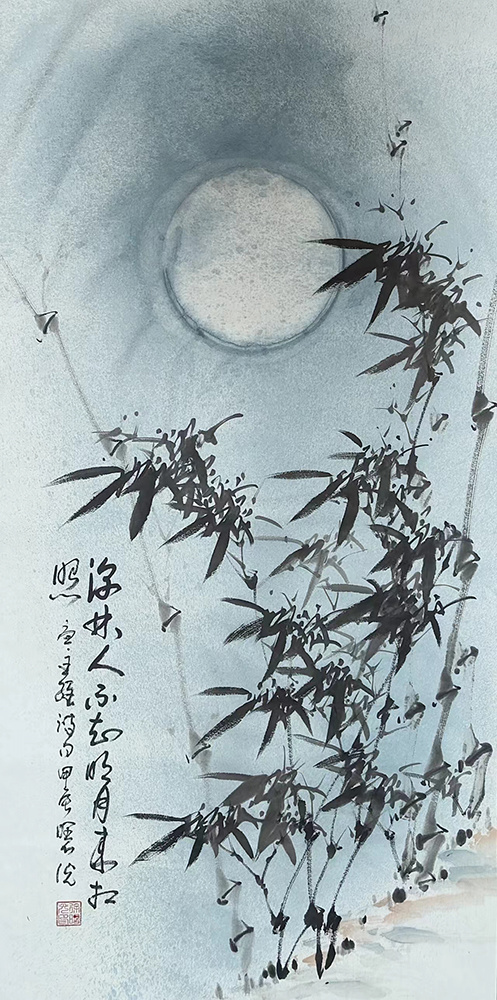 深林人不知明月來相
照 唐王維詩句甲辰